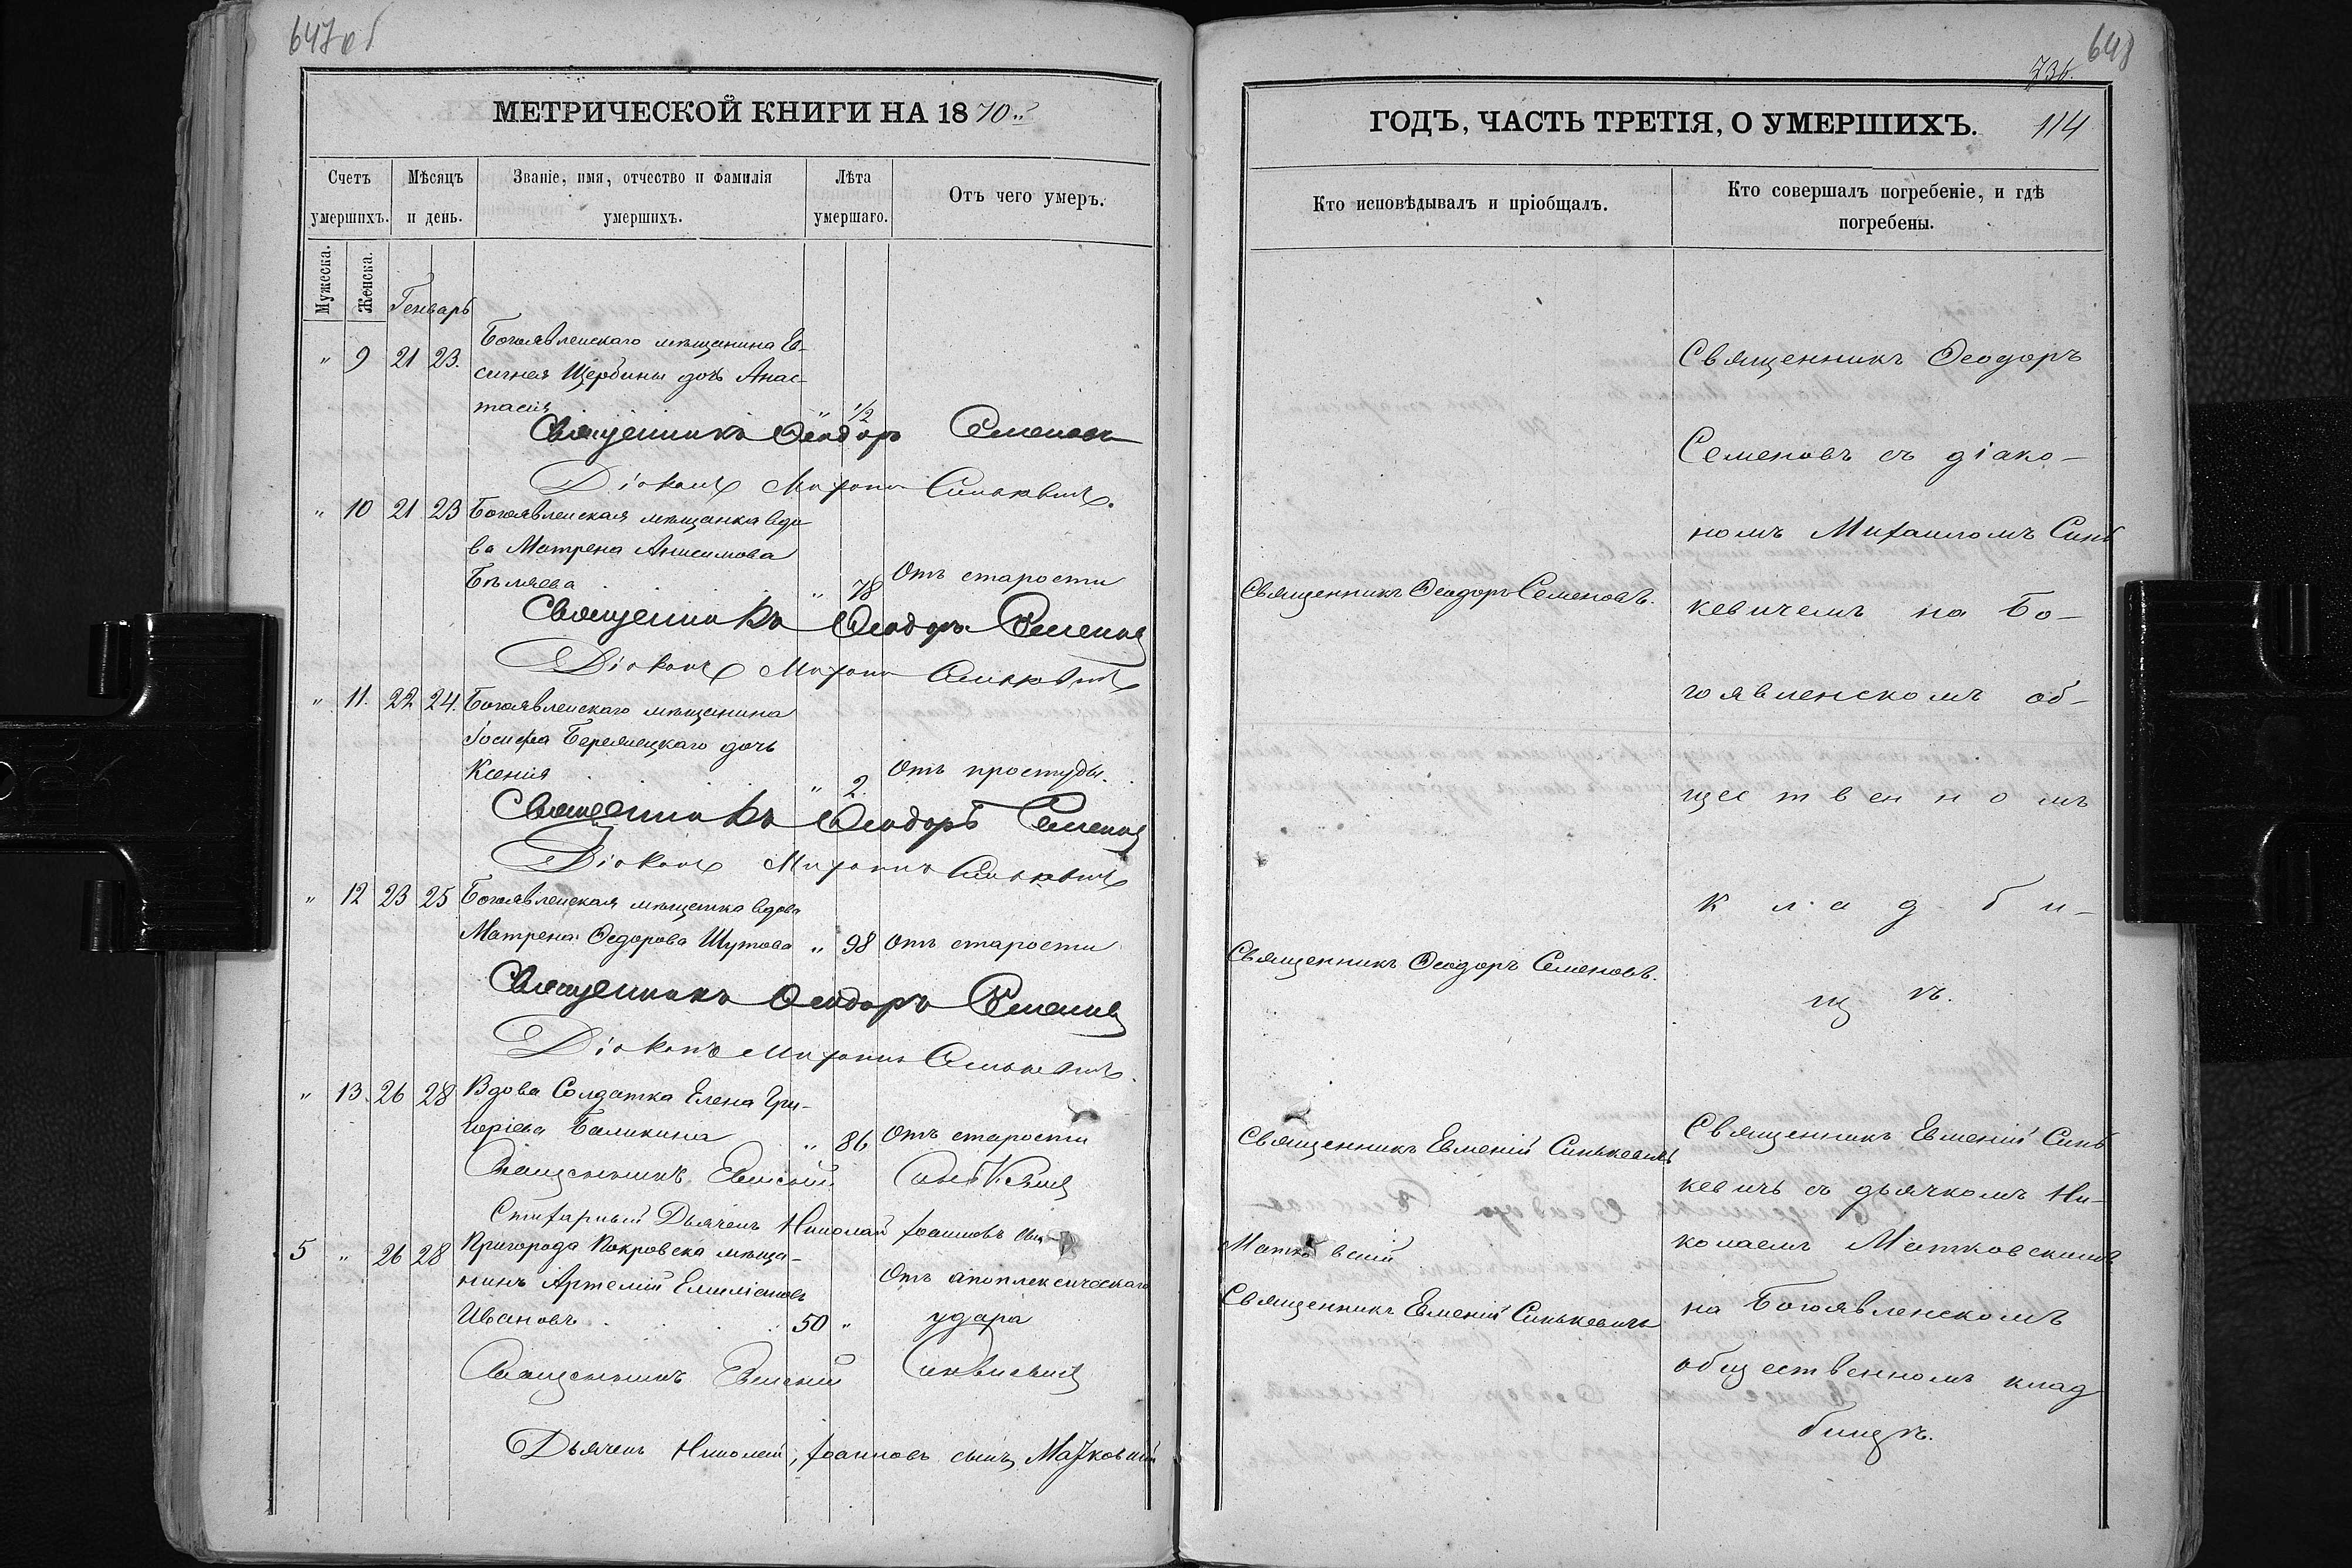 647 об
МЕТРИЧЕСКОЙ КНИГИ НА 1870.
Счетъ умершихъ.
Мѣсяцъ и день.
Званіе, имя, отчество и фамилія умершихъ.
Лѣта умершаго.
Отъ чего умеръ.
Мужеска.
Женска.
Генварь
" 9 21 23.
Богоявленскаго мѣщанина Ев-
сигнея Щербины дочь Анас-
тасія " 1/2
Священникъ Ѳеодоръ Семеновъ
Діаконъ Михаилъ Синькевичъ.
" 10 21 23 Богоявленская мѣщанка вдо
ва Матрена Анисимова
Бѣляева " 78 Отъ старости
Священникъ Ѳеодоръ Семеновъ
Діаконъ Михаилъ Синькевичъ
" 11. 22 24. Богоявленскаго мѣщанина
Іосифа дочь
Ксенія " 2. Отъ простуды.
Священникъ Ѳеодоръ Семеновъ
Діаконъ Михаилъ Синькевичъ
" 12 23 25 Богоявленская мѣщанка вдова
Матрена Ѳедорова Шутова " 98 Отъ старости
Священникъ Ѳеодоръ Семеновъ
Діаконъ Михаилъ Синькевичъ.
" 13. 26 28 Вдова Солдатка Елена Гри-
горіева Баликина " 86 Отъ старости
Священникъ Евменій Синькевичъ
Стихарный Дьячекъ Николай Іоанновъ сынъ
5 " 26 28 Пригорода Покровска мѣща-
нинъ Артемій Емиліановъ
Ивановъ 50 " Отъ апоплексическаго
удара
Священникъ Евменій Синькевичъ
Дьячекъ Николай, Іоанновъ сынъ, Матковскій
648
736.
ГОДЪ, ЧАСТЬ ТРЕТІЯ, О УМЕРШИХЪ.
114
Кто исповѣдывалъ и пріобщалъ.
Кто совершалъ погребеніе, и гдѣ
погребены.
Священникъ Ѳеодоръ Семеновъ.
Священникъ Ѳеодоръ Семеновъ.
Священникъ Евменій Синькевичъ
Матковскій
Священникъ Евменій Синькевичъ
Священникъ Ѳеодоръ
Семеновъ съ діако-
номъ Михаиломъ Синь
кевичемъ на Бо-
гоявленскомъ об-
щественномъ
кладби-
щѣ.
Священникъ Евменій Синь
кевичъ съ дьячкомъ Ни-
колаемъ Матковскимъ
на Богоявленскомъ
общественномъ клад
бищѣ.